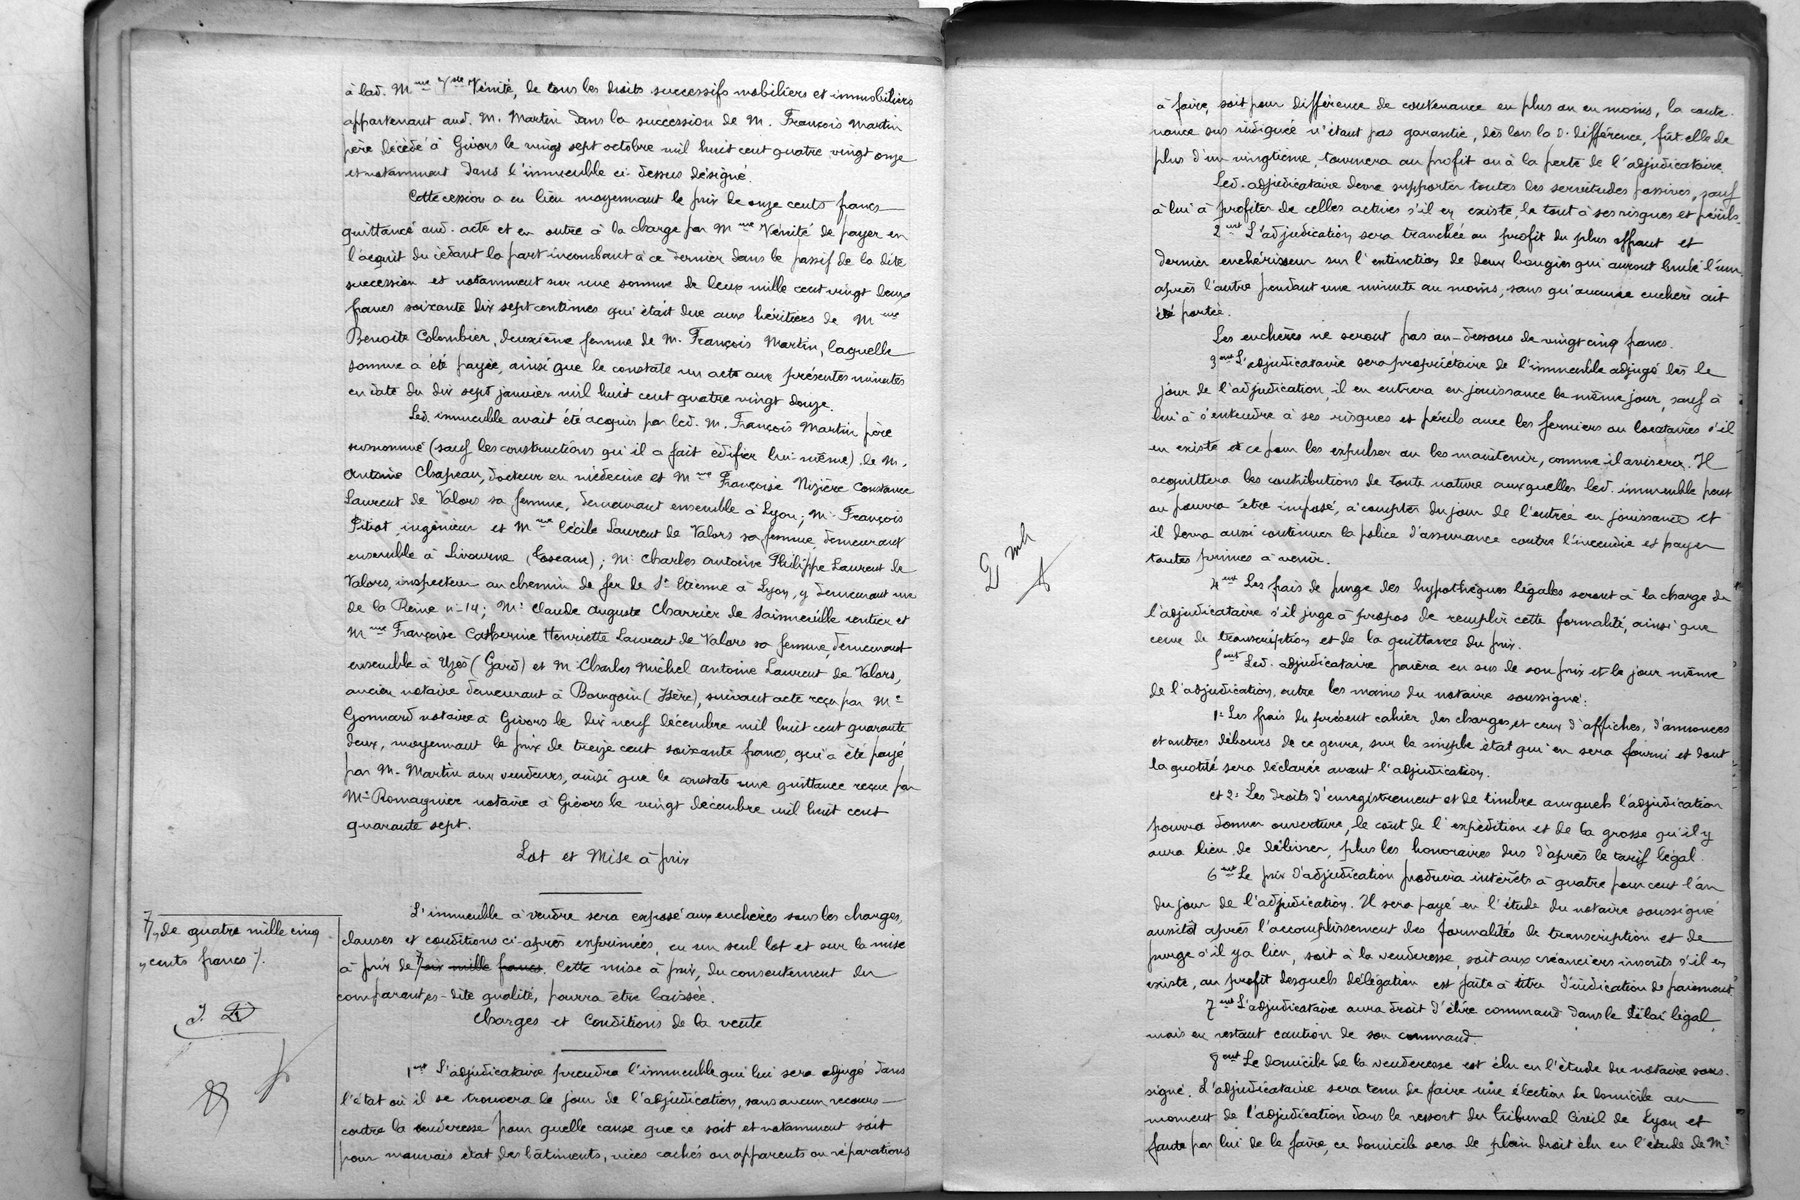 à lad. Mme Vve Vérité, de tous les droits successifs mobiliers et immobiliers
appartenant aud. M. Martin dans la succession de M. François Martin
père décédé à Givors le vingt sept octobre mil huit cent quatre vingt onze
et notamment dans l'immeuble ci dessus désigné.
Cette cession a eu lieu moyennant le prix de onze cents francs
quittancé aud. acte et en outre à la charge par Mme Vérité de payer en
l'acquit du cédant la part incombant à ce dernier dans le passif de la dite
succession et notamment sur une somme de deux mille cent vingt deux
francs soixante dix sept centimes qui était due aux héritiers de Mme
Benoite Colombier, deuxième femme de M. François Martin, laquelle
somme a été payée, ainsi que le constate un acte aux présentes minutes
en date du dix sept janvier mil huit cent quatre vingt douze.
Led. immeuble avait été acquis par led. M. François Martin père
susnommé (sauf les constructions qu'il a fait édifier lui-même) de M.
Antoine Chapeau, docteur en médecine et Mme Françoise Nizière Constance
Laurent de Valors sa femme, demeurant ensemble à Lyon; M. François
Pitiot, ingénieur et Mme Cécile Laurent de Valors sa femme, demeurant
ensemble à Livourne (Toscane); Mr Charles Antoine Philippe Laurent de
Valors, inspecteur au chemin de fer de St Etienne à Lyon, y demeurant rue
de la Reine n-14; Mr Claude Auguste Charrier de Sainneville rentier et
Mme Françoise Catherine Henriette Laurent de Valors sa femme, demeurant
ensemble à Uzès (Gard) et M. Charles Michel Antoine Laurent de Valors,
ancien notaire demeurant à Bourgoin (Isère), suivant acte reçu par Me
Gonnard notaire à Givors le dix neuf décembre mil huit cent quarante
deux, moyennant le prix de treize cent soixante francs, qui a été payé
par M. Martin aux vendeurs, ainsi que le constate une quittance reçue par
Me Romagnier notaire à Givors le vingt décembre mil huit cent
quarante sept.
Lot et Mise à prix
L'immeuble à vendre sera exposé aux enchères sous les charges,
clauses et conditions ci-après exprimées, en un seul lot et sur la mise
à prix de 7/ six mille francs. Cette mise à prix, du consentement du
comparant, es-dite qualité, pourra être baissée.
7/ de quatre mille cinq
cents francs /.
Charges et Conditions de la vente
1ent L'adjudicataire prendra l'immeuble qui lui sera adjugé dans
l'état où il se trouvera le jour de l'adjudication, sans aucun recours
contre la venderesse pour quelle cause que ce soit et notamment soit
pour mauvais état des bâtiments, vices cachés ou apparents ou réparations
à faire, soit pour différence de contenance en plus ou en moins, la conte
nance sus indiquée n'étant pas garantie, dès lors la d. différence, fut-elle de
plus d'un vingtième, tournera au profit ou à la perte de l'adjudicataire.
Led. adjudicataire devra supporter toutes les servitudes passives, sauf
à lui à profiter de celles actives s'il en existe, le tout à ses risques et périls.
2ent L'adjudication sera tranchée au profit du plus offrant et
dernier enchérisseur sur l'extinction de deux bougies qui auront brulé l'une
après l'autre pendant une minute au moins, sans qu'aucune enchère ait
été portée.
Les enchères ne seront pas au-dessous de vingt cinq francs.
3ent L'adjudicataire sera propriétaire de l'immeuble adjugé dès le
jour de l'adjudication, il en entrera en jouissance le même jour, sauf à
lui à s'entendre à ses risques et périls avec les fermiers ou locataires s'il
en existe et ce pour les expulser ou les maintenir, comme il avisera. Il
acquittera les contributions de toute nature auxquelles led. immeuble peut
ou pourra être imposé, à compter du jour de l'entrée en jouissance et
il devra aussi continuer la police d'assurance contre l'incendie et payer
toutes primes à venir.
4ent Les frais de purge des hypothèques légales seront à la charge de
l'adjudicataire s'il juge à propos de remplir cette formalité, ainsi que
ceux de transcription et de la quittance du prix.
5ent Led. adjudicataire paiera en sus de son prix et le jour même
de l'adjudication, entre les mains du notaire soussigné:
1° Les frais du présent cahier des charges, et ceux d'affiches, d'annonces
et autres débours de ce genre, sur le simple état qui en sera fourni et dont
la quotité sera déclarée avant l'adjudication.
et 2° Les droits d'enregistrement et de timbre auxquels l'adjudication
pourra donner ouverture, le coût de l'expédition et de la grosse qu'il y
aura lieu de délivrer, plus les honoraires dus d'après le tarif légal.
6ent Le prix d'adjudication produira intérêts à quatre pour cent l'an
du jour de l'adjudication. Il sera payé en l'étude du notaire soussigné
aussitôt après l'accomplissement des formalités de transcription et de
purge s'il y a lieu, soit à la venderesse, soit aux créanciers inscrits s'il en
existe, au profit desquels délégation est faite à titre d'indication de paiement.
7ent L'adjudicataire aura droit d'élire command dans le délai légal,
mais en restant caution de son command.
8ent Le domicile de la venderesse est élu en l'étude du notaire sous-
signé. L'adjudicataire sera tenu de faire une élection de domicile au
moment de l'adjudication dans le ressort du Tribunal Civil de Lyon et
faute par lui de le faire, ce domicile sera de plein droit élu en l'étude de Me